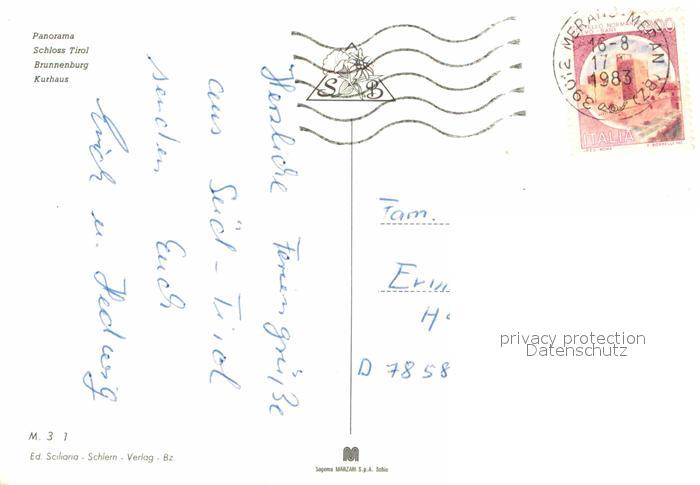 Panorama
Schloss Tirol
Brunnenburg
Kurhaus
Herzliche Feriengrüße
aus Süd-Tirol
senden Euch
Erich u. Hedwig
M. 3 1
Ed. Sciliaria - Schlern - Verlag - Bz.
S B
39012 MERANO-MERAN (BZ)
16-8
17
1983
ITALIA
Fam.
Erw
H
D 7858
privacy protection
Datenschutz
M
Sagoma MARZARI S.p.A. Schio